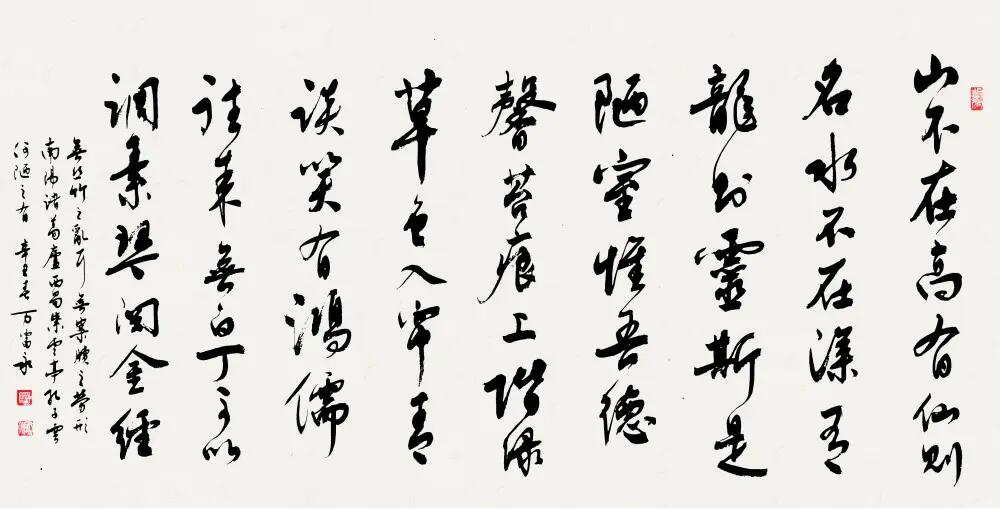 山不在高有仙则
名水不在深有
龍则靈斯是
陋室惟吾德
馨苔痕上阶绿
草色入帘青
谈笑有鴻儒
往来無白丁可以
调素琴阅金經
無丝竹之亂耳無案牍之劳形
南阳诸葛廬西蜀子雲亭孔子雲
何陋之有 辛丑春 万雷永